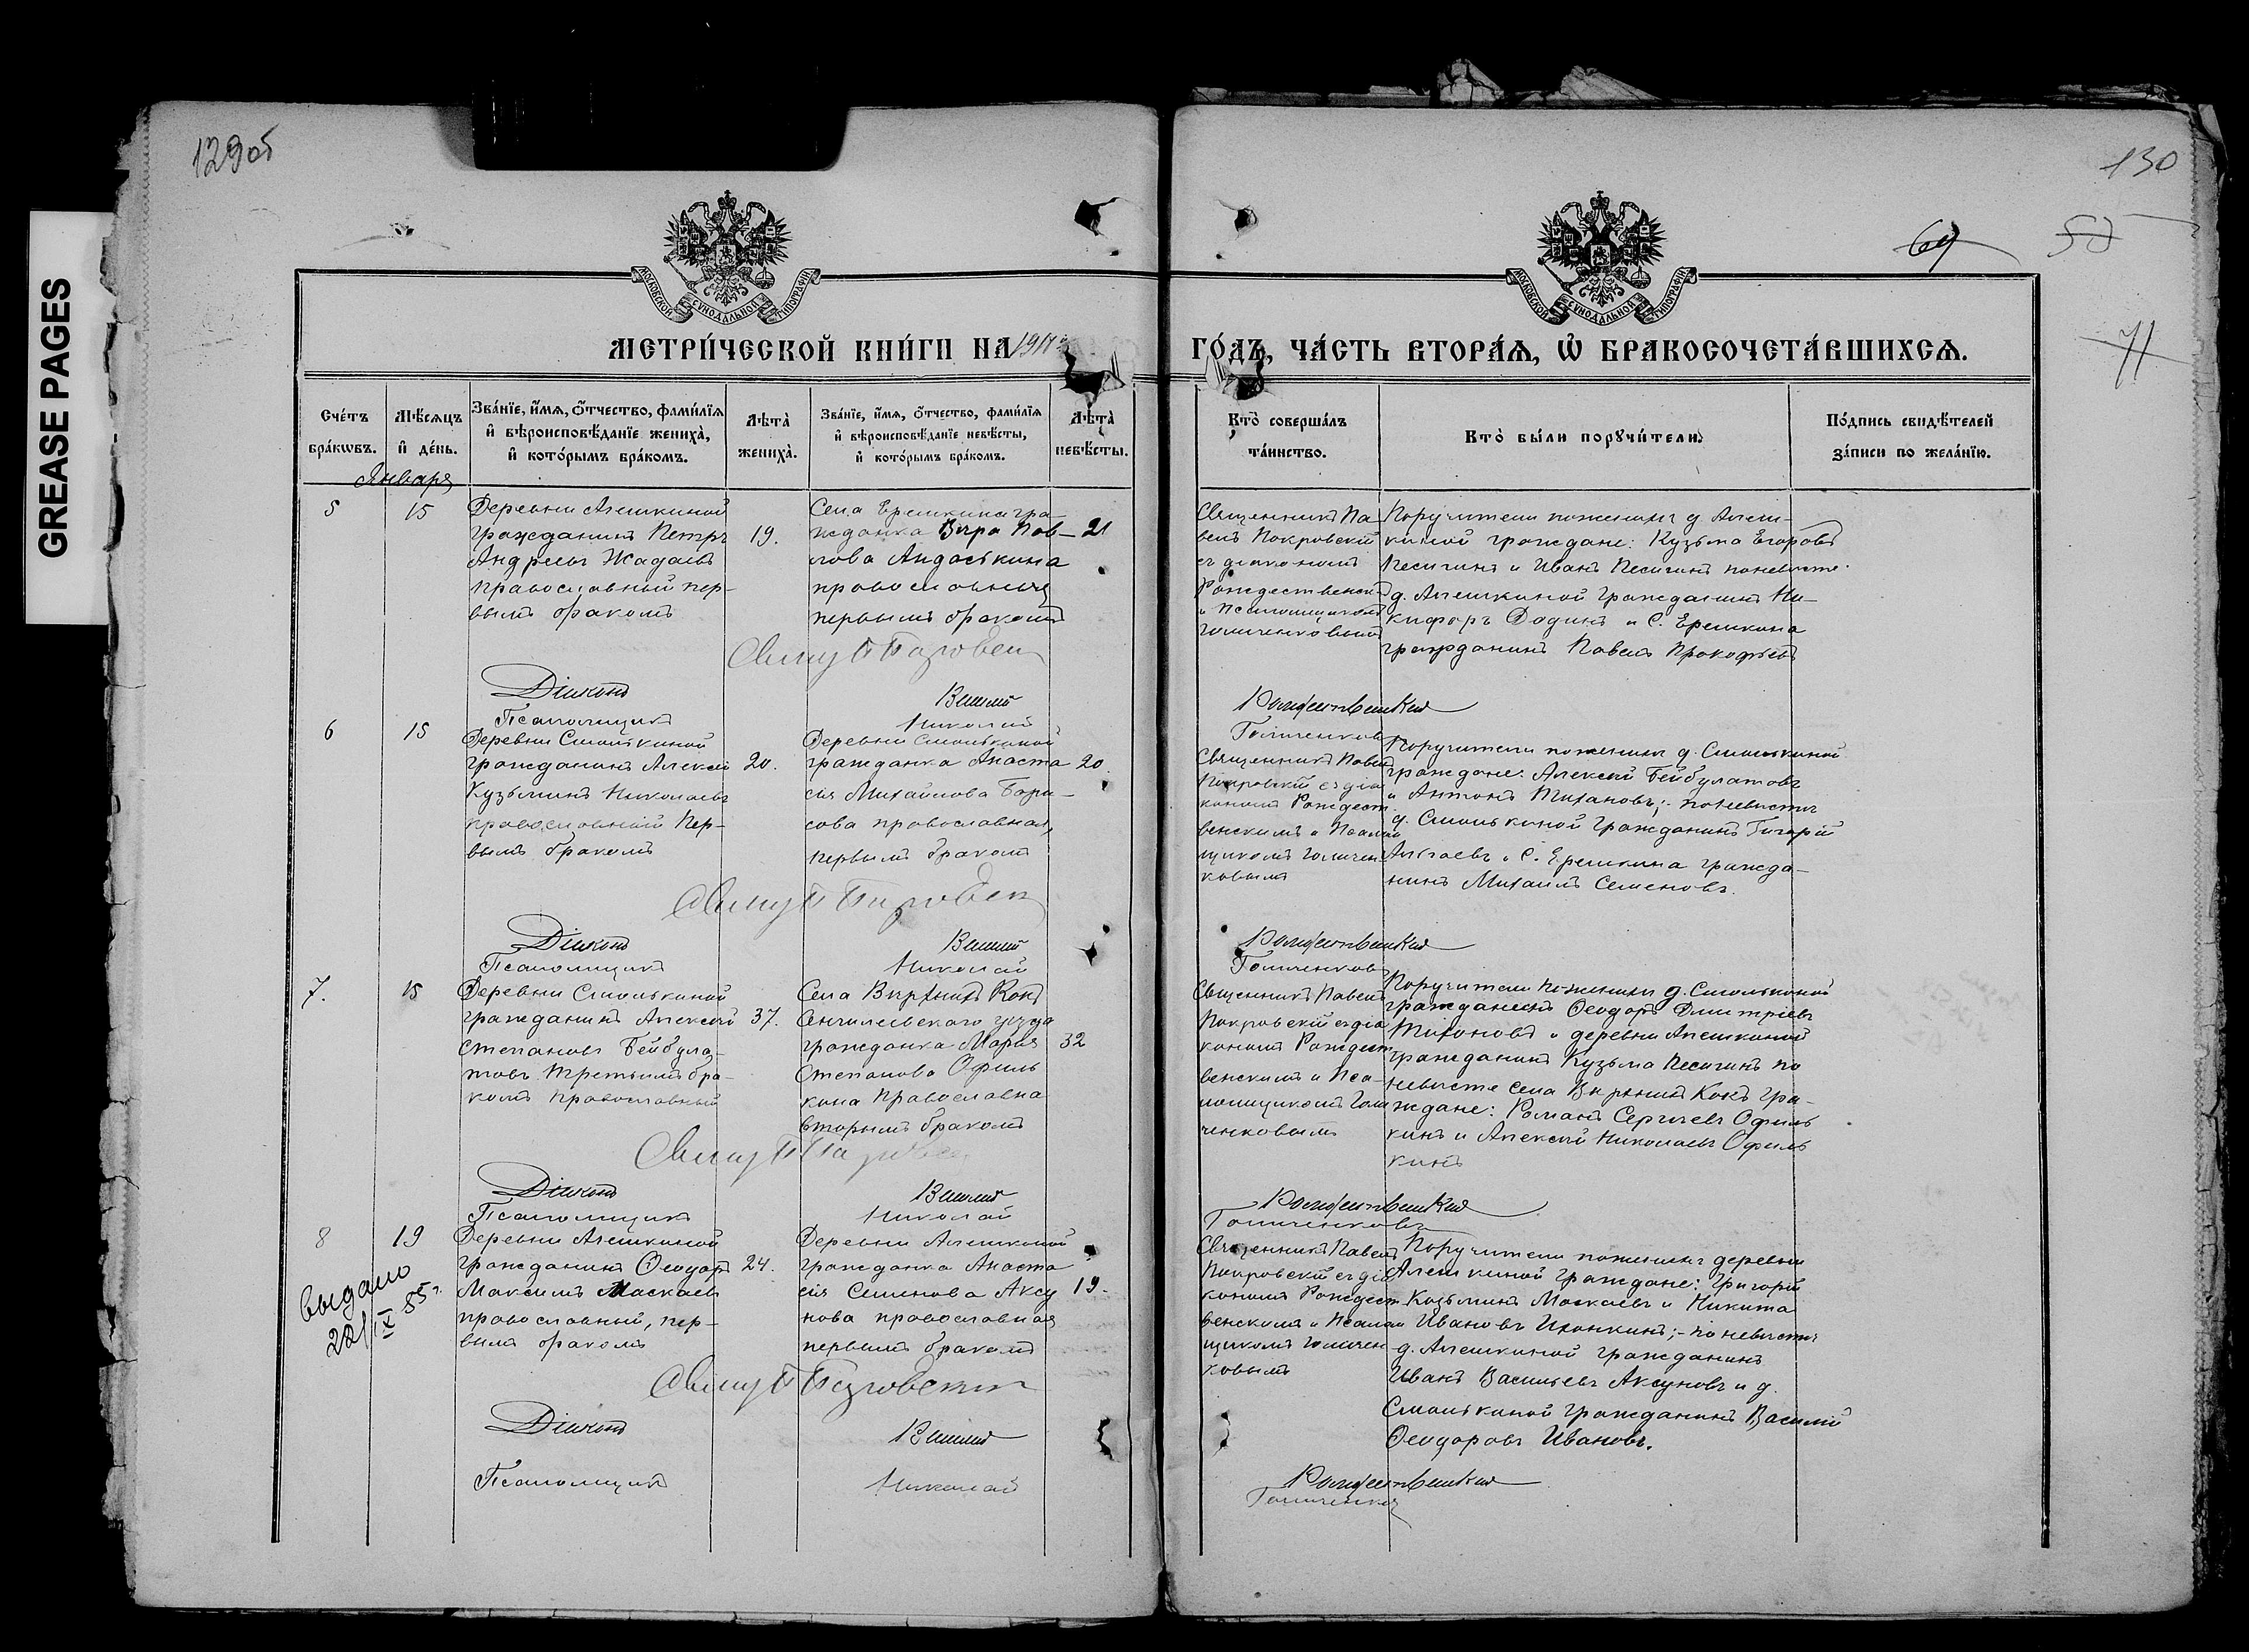 GREASE PAGES
129об
130
69
50
71
МОСКОВСКОЙ СѴНОДАЛЬНОЙ ТИПОГРАФІИ
МОСКОВСКОЙ СѴНОДАЛЬНОЙ ТИПОГРАФІИ
МЕТРИ́ЧЕСКОЙ КНИ́ГИ НА
ГО́ДЪ, ЧА́СТЬ ВТОРА́Ѧ, Ѡ҆ БРАКОСОЧЕТА́ВШИХСѦ.
Сче́тъ бра́кωвъ.
Мѣ́сѧцъ и҆ де́нь.
Зва́нїе, и҆́мѧ, о҆́тчество, фами́лїѧ и҆ вѣроисповѣ́данїе жениха̀, и҆ кото́рымъ бра́комъ.
Лѣта̀ жениха̀.
Зва́нїе, и҆́мѧ, о҆́тчество, фами́лїѧ и҆ вѣроисповѣ́данїе невѣ́сты, и҆ кото́рымъ бра́комъ.
Лѣта̀ невѣ́сты.
Кто̀ соверша́лъ та́инство.
Кто̀ бы́ли порꙋчи́тели.
По́дпись свидѣ́телей за́писи по жела́нїю.
Января
5
15
Деревни Алешкиной
гражданинъ Петръ
Андреевъ Жадаевъ
православный пер-
вымъ бракомъ
19.
Села Еремкина гра-
жданка Вѣра Пав-
лова Андоськина
православная
первымъ бракомъ
21
Священникъ Па
велъ Покровскій
съ діакономъ
Рождественск
и псаломщикомъ
Голиченковымъ
Поручители по женихѣ д. Алеш-
киной граждане: Кузьма Егоровъ
Песигинъ и Иванъ Песигинъ по невѣсте
д. Алешкиной гражданинъ Ни-
кифоръ Додинъ и С. Еремкина
гражданинъ Павелъ Прокофьевъ
Діаконъ
Василій
Рождественскій
Псаломщикъ
Николай
Голиченковъ
6
15
Деревни Смолькиной
гражданинъ Алексѣй
Кузьминъ Николаевъ
православный пер-
вымъ бракомъ
20.
Деревни Смолькиной
гражданка Анаста
сія Михайлова Бори-
сова православная,
первымъ бракомъ
20.
Священникъ Павелъ
Покровскій съ діа
кономъ Рождест
венскимъ и псалом
щикомъ Голичен-
ковымъ
Поручители по женихѣ д. Смолькиной
граждане: Алексѣй Бейбулатовъ
и Антонъ Тихановъ; по невѣстѣ
д. Смолькиной гражданинъ
и С. Еремкина гражда-
нинъ Михаилъ Семеновъ.
Діаконъ
Василій
Рождественскій
Псаломщикъ
Николай
Голиченковъ
7.
15
Деревни Смолькиной
гражданинъ Алексѣй
Степановъ Бейбула-
товъ третьимъ бра-
комъ православный
37.
Села Верхнихъ Кокъ
Сенгилеевскаго уѣзда
гражданка Марія
Степанова Офиль
кина Православна
вторымъ бракомъ
32
Священникъ Павелъ
Покровскій съ діа
кономъ Рождест
венскимъ и Пса-
ломщикомъ Голи
ченковымъ
Поручители по женихѣ д. Смолькиной
гражданинъ Ѳеодоръ Дмитріевъ
Тихоновъ и деревни Алешкиной
гражданинъ Кузьма Песигинъ по
невѣсте села Верхнихъ Кокъ гра-
ждане: Романъ Сергѣевъ Офиль
кинъ и Алексѣй Николаевъ Офиль
кинъ
Діаконъ
Василій
Рождественскій
Псаломщикъ
Николай
Голиченковъ
8
19
выдано
Деревни Алешкиной
гражданинъ Ѳеодоръ
Максимъ Маскаевъ
православный, пер-
вымъ бракомъ
24.
Деревни Алешкиной
гражданка Анаста
сія Семенова Аксу
нова православная
первымъ бракомъ
19.
Священникъ Павелъ
Покровскій съ діа
кономъ Рождест
венскимъ и Псалом
щикомъ Голичен-
ковымъ
Поручители по женихѣ деревни
Алешкиной граждане: Григорій
Козьминъ Маскаевъ и Никита
Ивановъ Илонкинъ; по невѣстѣ
д. Алешкиной гражданинъ
Иванъ Васильевъ Аксуновъ и д.
Смолькиной гражданинъ Василій
Ѳеодоровъ Ивановъ.
Діаконъ
Василій
Рождественскій
Псаломщикъ
Николай
Голиченковъ